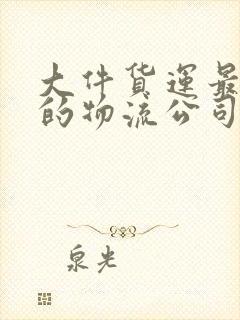 大件货运最
的物流公司
泉光